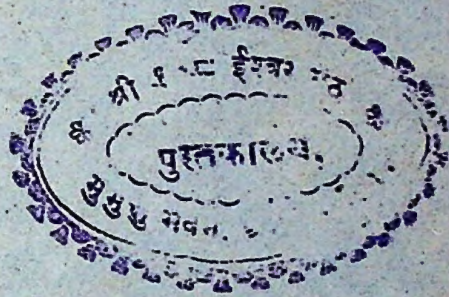 श्री ईश्वर
पुस्तकालय,
मुमुक्षु भवन,